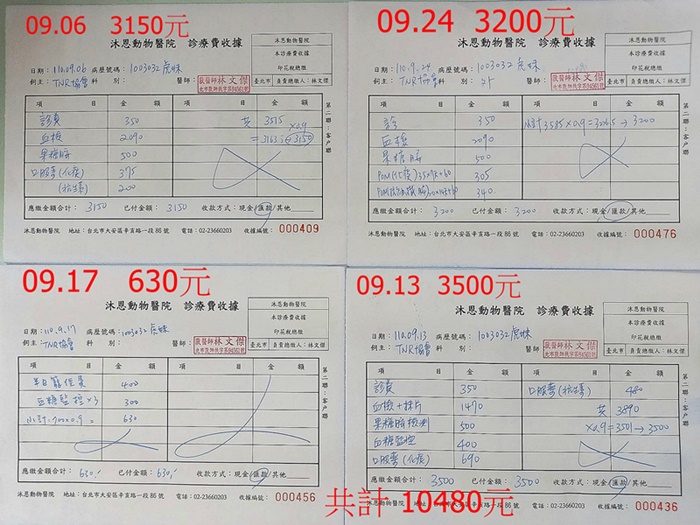 09.06 3150元
沐恩動物醫院 診療費收據
沐恩動物醫院
本診療費收據
印花稅總繳
臺北市 負責總繳人:林文傑
日期:110.09.06 病歷號碼:1003032虎妹
飼主:TNR協會 科別: 醫師:獸醫師林文傑
項目 金額 項目 金額
診費 350 共 3515
血檢 2090 ×0.9
果糖胺 500
口服藥(化痰) 375
(抗生素) 200
應繳金額合計:3150 已付金額:3150 收款方式:現金/匯款/其他
沐恩動物醫院 地址:台北市大安區辛亥路一段86號 電話:02-23660203 收據編號:000409
第二聯:林九聯
09.24 3200元
沐恩動物醫院 診療費收據
沐恩動物醫院
本診療費收據
印花稅總繳
臺北市 負責總繳人:林文傑
日期:110.9.24 病歷號碼:1003032虎妹
飼主:TNR協會 科別: 醫師:獸醫師林文傑
項目 金額 項目 金額
診 350 小計3585×0.9=3226.5→3200
血檢 2090
果糖胺 500
305
340
應繳金額合計:3200 已付金額:3200 收款方式:現金/匯款/其他
沐恩動物醫院 地址:台北市大安區辛亥路一段86號 電話:02-23660203 收據編號:000476
09.17 630元
沐恩動物醫院 診療費收據
沐恩動物醫院
本診療費收據
印花稅總繳
臺北市 負責總繳人:林文傑
日期:110.9.17 病歷號碼:1003032虎妹
飼主:TNR協會 科別: 醫師:獸醫師林文傑
項目 金額 項目 金額
半日籠位費 400
血糖監控×3 300
小計:700×0.9= 630
應繳金額合計:630 已付金額:630 收款方式:現金/匯款/其他
沐恩動物醫院 地址:台北市大安區辛亥路一段86號 電話:02-23660203 收據編號:000456
09.13 3500元
沐恩動物醫院 診療費收據
沐恩動物醫院
本診療費收據
印花稅總繳
臺北市 負責總繳人:林文傑
日期:110.09.13 病歷號碼:1003032虎妹
飼主:TNR協會 科別: 醫師:獸醫師林文傑
項目 金額 項目 金額
診費 350 口服藥(抗生素) 480
血檢+抹片 1470 共 3890
果糖胺檢測 500 ×0.9=3501→3500
血糖監控 400
口服藥(化痰) 690
應繳金額合計:3500 已付金額:3500 收款方式:現金/匯款/其他
沐恩動物醫院 地址:台北市大安區辛亥路一段86號 電話:02-23660203 收據編號:000436
共計 10480元